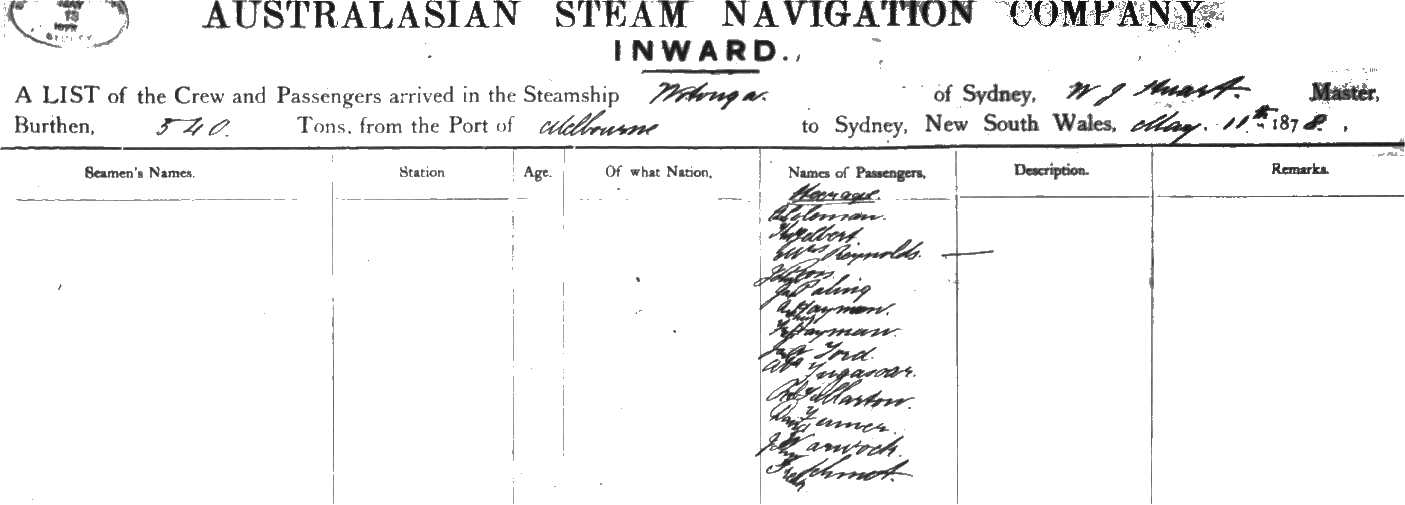 MAY
13
1878
SYDNEY
AUSTRALASIAN STEAM NAVIGATION COMPANY.
INWARD.
A LIST of the Crew and Passengers arrived in the Steamship Wotonga. of Sydney, W J Stuart. Master,
Burthen, 540. Tons, from the Port of Melbourne to Sydney, New South Wales, May. 11th 1878.,
Seamen's Names. Station Age. Of what Nation, Names of Passengers, Description. Remarks.
Steerage.
Soloman.
Mrs Reynolds.
Paling
Hayman.
Hayman.
Ford.
Fullarton.
Warwock.